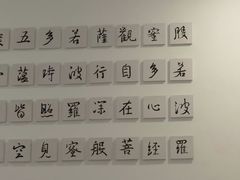 般若波羅
蜜多心經
觀自在菩
薩行深般
若波羅蜜
多時照見
五蘊皆空